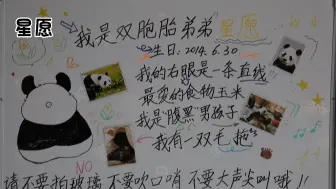 星愿
我是双胞胎弟弟 星愿
生日：2014.6.30
我的右眼是一条直线
最爱的食物玉米
我是“腹黑”男孩子
我有一双毛拖
NO
请不要拍玻璃 不要吹口哨 不要大声尖叫哦！！